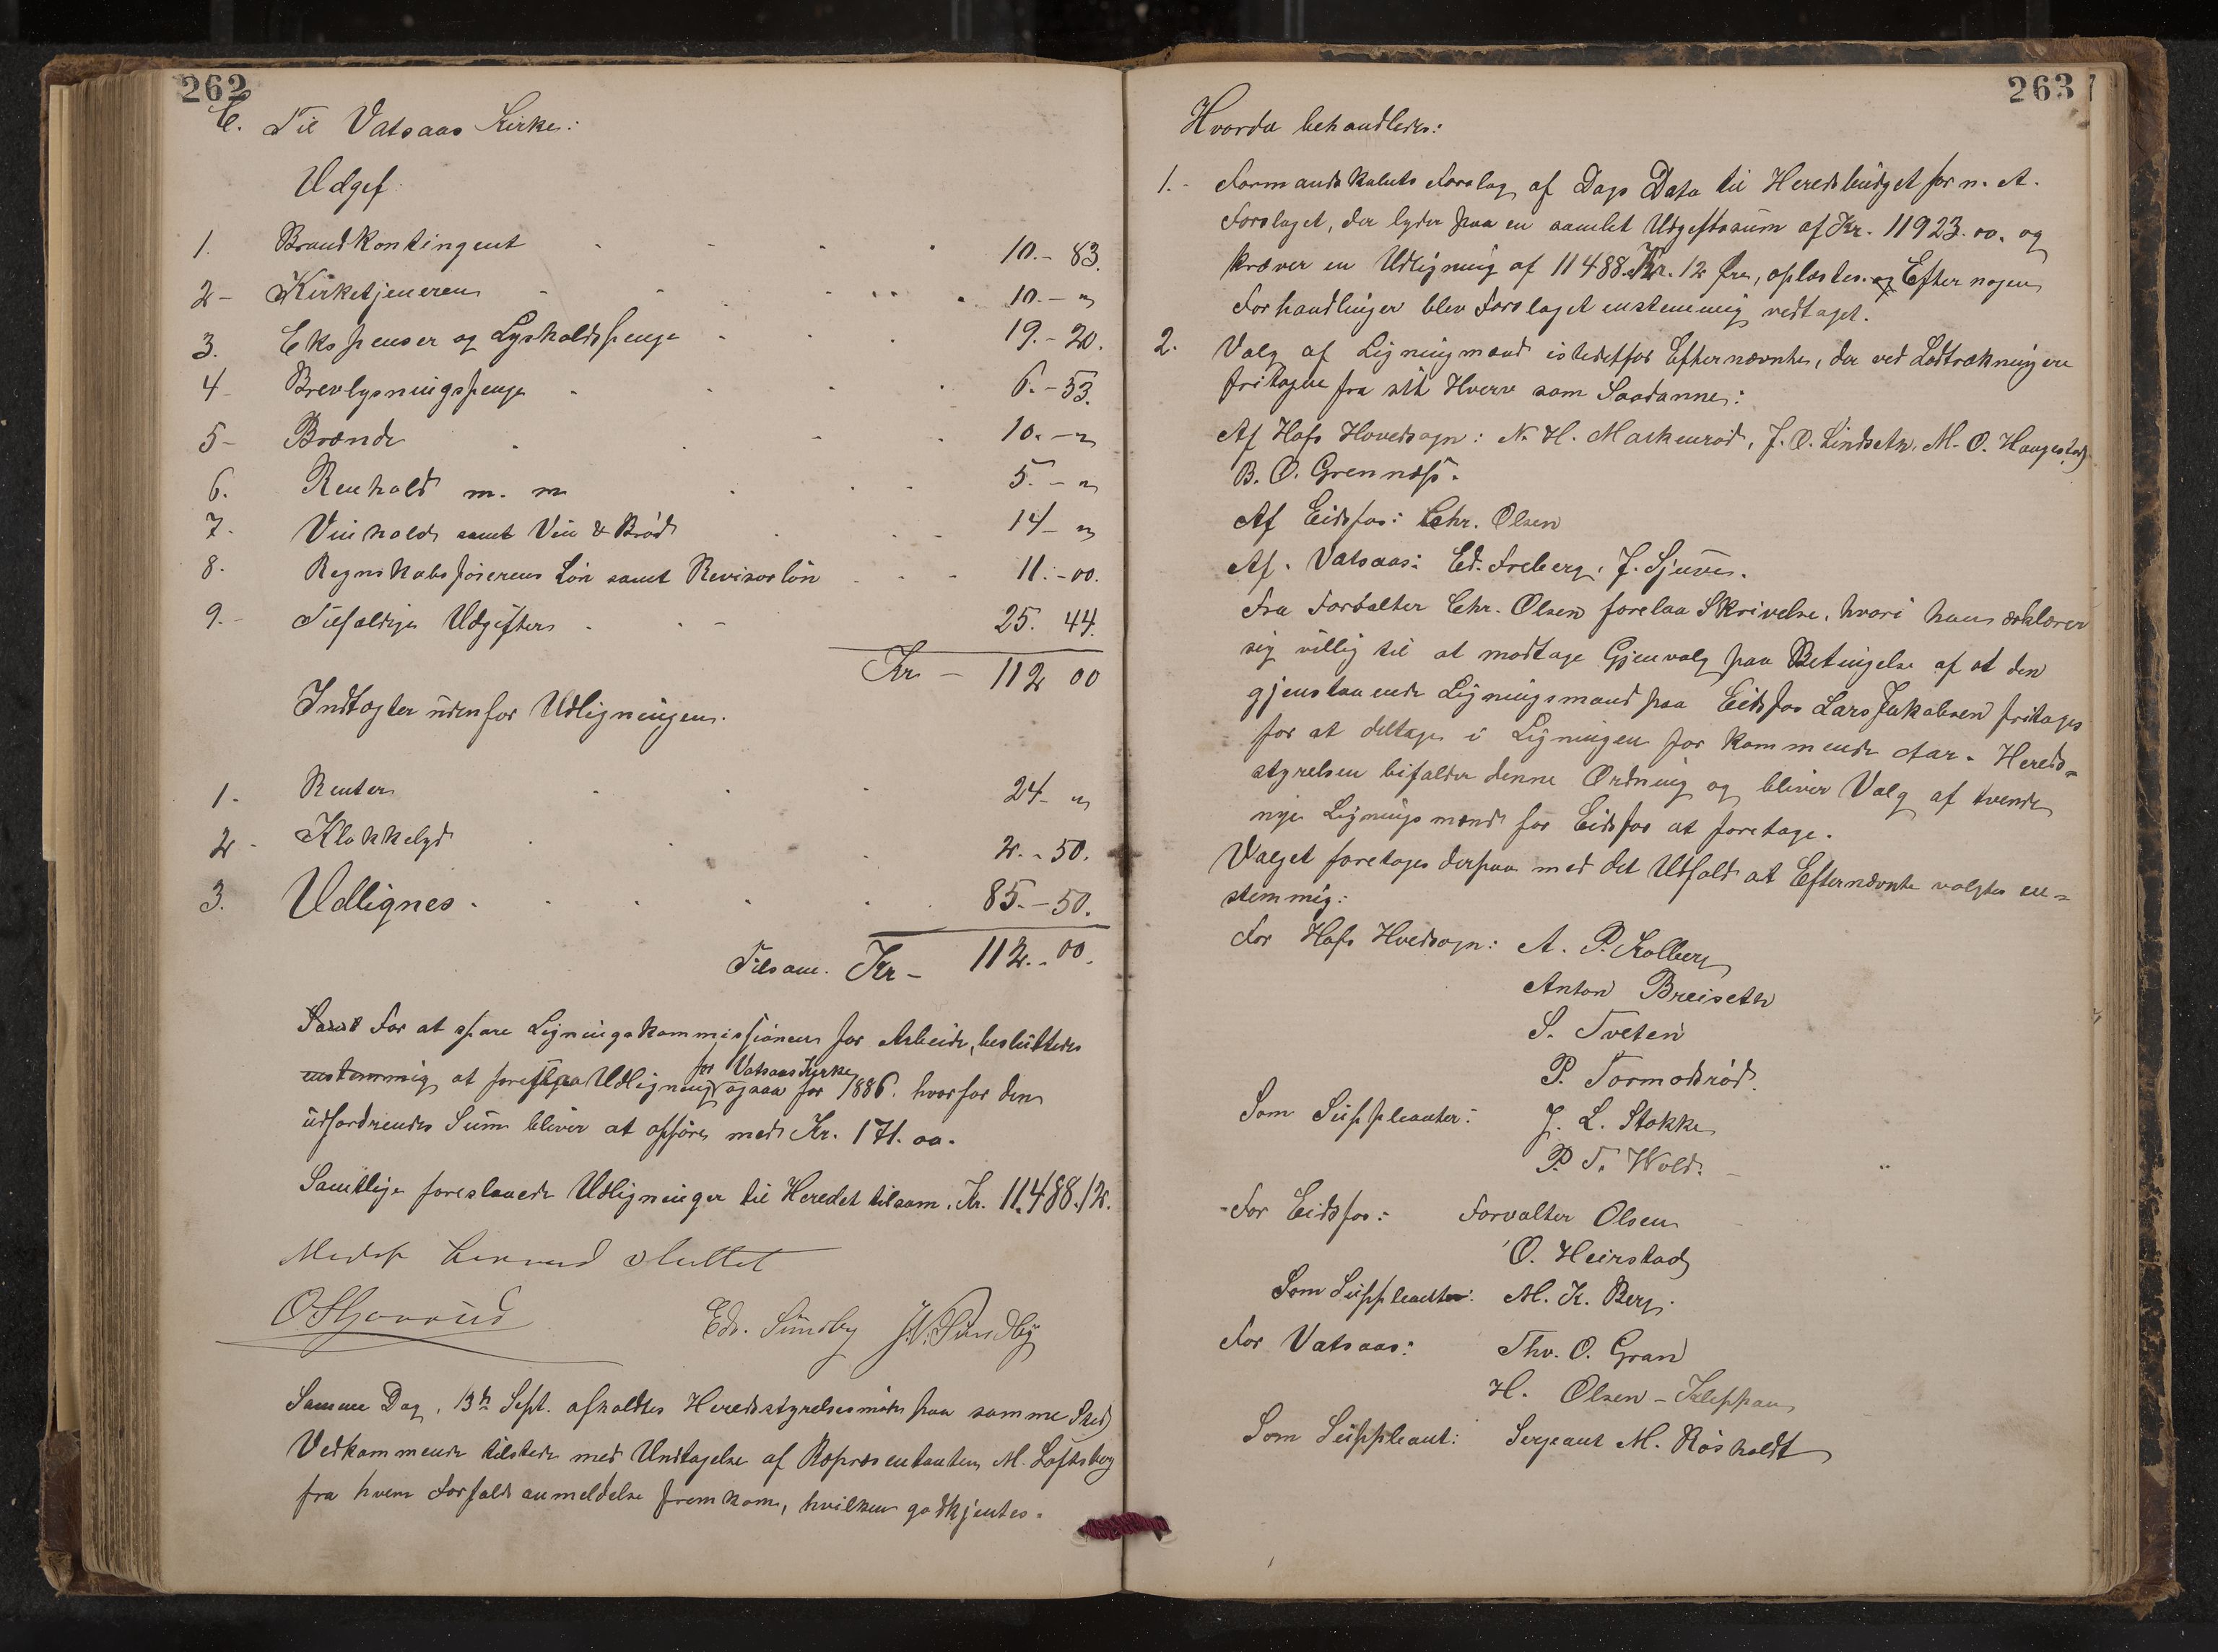 262
C. Til Vatsaas Kirke:
Udgif.
1. Brandkontingent 10.- 83.
2- Kirketjeneren 10.- "
3. Ekspenser og Lysholdspenge 19.- 20.
4- Brevlysningspenge 6.- 53.
5- Brænde 10.- "
6. Renhold m. m 5.- "
7- Vinhold samt Vin & Brød 14- "
8. Regnskabsførerens Løn samt Revisorløn 11.-00.
9.- Tilfældige Udgifter 25. 44.
Kr - 112 00
Indtægter udenfor Udligningen.
1- Renter 24- "
2- Klokkelyd 2.- 50.
3. Udlignes 85.- 50.
Tilsam. Kr - 112.- 00.
Samt For at spare Ligningskommissionen for Arbeide, besluttedes
enstemmig at foreslaa Udligning for Vatsaas Kirke ogsaa for 1886. hvorfor den
udfordrende Sum bliver at opføre med Kr. 171.00.
Samtlige foreslaaede Udligninger til Heredet tilsam. Kr. 11.488.12.
Mødet hermed sluttet
Edv. Sundby J. N. Sundby
Samme Dag, 13de Sept. afholdtes Heredsstyrelsesmøde paa samme Sted
Vedkommende tilstede med Undtagelse af Repræsentanten M. Loftsberg
fra hvem Forfaldsanmeldelse fremkom, hvilken godkjentes.
263
Hvorda behandledes:
1.- Formandskabets Forslag af Dags Dato til Heredsbudget for n. A.
Forslaget, der lyder paa en samlet Udgiftssum af Kr. 11923.00. og
kræver en Udligning af 11488 Kr. 12 Øre, oplæstes. og Efter nogen
Forhandlinger blev Forslaget enstemmig vedtaget.
2. Valg af Ligningmænd istedetfor Efternævnte, der ved Lodtrækningen
fritages fra sit Hverv som Saadanne:
Af Hofs Hovedsogn: N. H. Markenrød, J. O. Lindseth, M. O. Haugestad
B. O. Grennæss.
Af Eidsfos: Chr. Olsen
Af. Vatsaas: Ed. Freberg, J. Sjue
Fra Forvalter Chr. Olsen forelaa Skrivelse, hvori han erklærer
sig villig til at modtage Gjenvalg paa Betingelse af at den
gjenstaaende Ligningsmand paa Eidsfos Lars Jakobsen fritages
for at deltage i Ligningen for kommende Aar. Hereds-
styrelsen bifalder denne Ordning og bliver Valg af tvende
nye Ligningsmænd for Eidsfos at foretage.
Valget foretages derpaa med det Udfald at Efternævnte valgtes en-
stemmig:
For Hofs Hvedsogn: A. P. Kolberg
Anton Breiseth
S. Tveten
P. Tormodsrød.
Som Suppleanter: J. L. Stokke
P. T. Wold.
For Eidsfos: Forvalter Olsen
O. Heirstad
Som Suppleanter: M. K. Berg.
For Vatsaas: Thv. O. Gran
H. Olsen - Kleppan
Som Suppleant: Sergeant M. Røsholdt